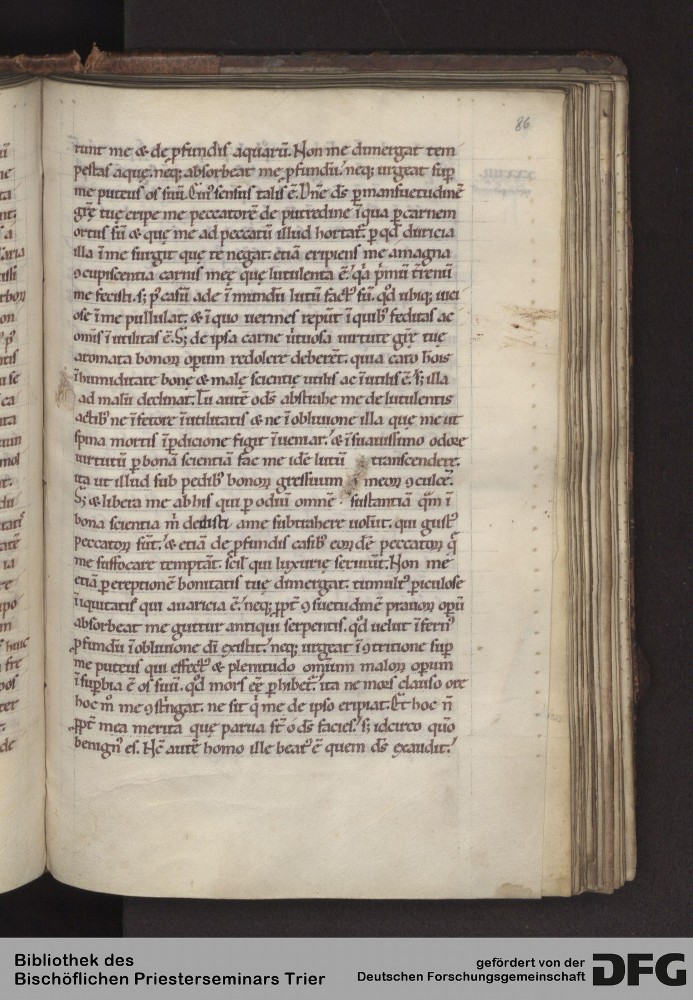 86
runt me & de ꝓfundis aquarū. Non me dimergat tem
pestas aquę. neq; absorbeat me ꝓfundū. neq; urgeat suꝑ
me puteus os suū. Cui' sensus talis ē. Dn̄e ds̄ ꝑ mansuetudinē
grē tuę eripe me peccatorē de putredine ī qua ꝑ carnem
ortus sū & que me ad peccatū illud hortat᷑ ꝑ qd̄ duricia
illa ī me surgit que te negat. etiā eripiens me a magna
ꝯcupiscentia carnis meę quę lutulenta ē. q̄a p̄mū t̄renū
me fecisti. s; p' casū ade ī mundū lutū fact' sū. qd̄ ubiq; uici
ose ī me pullulat. & ī quo uermes repūt ī quib' feditas ac
om̄is ī utilitas ē. S; de ipsa carne uirtuosa uirtute grē tuę
aromata bonoꝝ operum redolere deberēt. quia caro hōis
ī humiditate bonę & malę scientię utilis ac īutilis ē. s; illa
ad malū declinat. Tu autē o ds̄ abstrahe me de lutulentis
actib' ne ī fetore īutilitatis & ne ī obliuione illa que me ut
spina mortis ī ꝑdicione figit īueniar. & ī suauissimo odore
uirtutū ꝑ bonā scientiā fac me idē lutū transcendere.
ita ut illud sub pedib' bonoꝝ gressuum meoꝝ ꝯculcē.
S; & libera me ab his qui ꝑ odiū omnē sustantiā quā ī
bona scientia m̄ dedisti a me subtrahere uolūt. qui gust'
peccatoꝝ sūt. & etiā de ꝓfundis casib' eorūdē peccatoꝝ q̄
me suffocare temptāt. scil' qui luxurię seruiūt. Non me
etiā ꝑ ereptionē bonitatis tuę dimergat. tumult' ꝑiculose
īiquitatis qui auaricia ē. neq; ꝓpt᷑ ꝯsuetudinē prauoꝝ opū
absorbeat me guttur antiqui serpentis. qd̄ uelut īfern'
ꝓfundū ī obliuione dī existit. neq; urgeat ī ꝯtritione suꝑ
me puteus qui effect' & plenitudo omnium maloꝝ operum
ī suꝑbia ē os suū. qd̄ mors eē ꝑhibet᷑. ita ne mors clauso ore
hoc m̄ me ꝯstringat. ne sit q̄ me de ipso eripiat. Et hoc n̄
ꝓpt᷑ mea merita quę parua st̄ o ds̄ facies. s; idcirco quō
benign' es. Hē autē homo ille beat' ē quem ds̄ exaudit.
Bibliothek des
Bischöflichen Priesterseminars Trier
gefördert von der
Deutschen Forschungsgemeinschaft
DFG